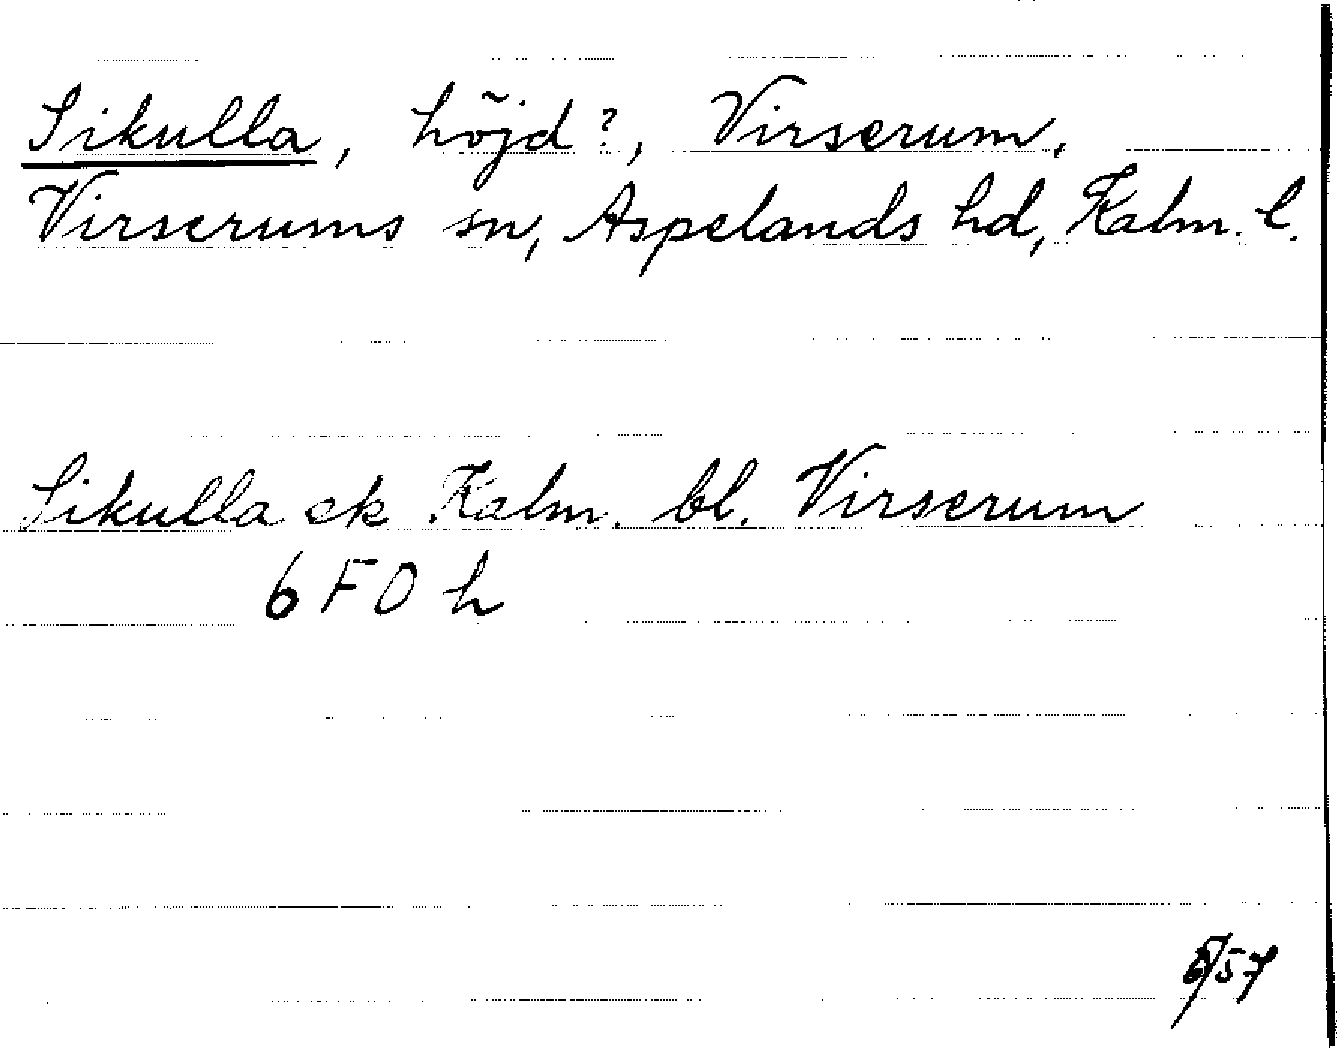 Sikulla, höjd?, Virserum,
Virserums sn, Aspelands hd, Kalm. l.
Sikulla ek Kalm. bl. Virserum
6 F O h